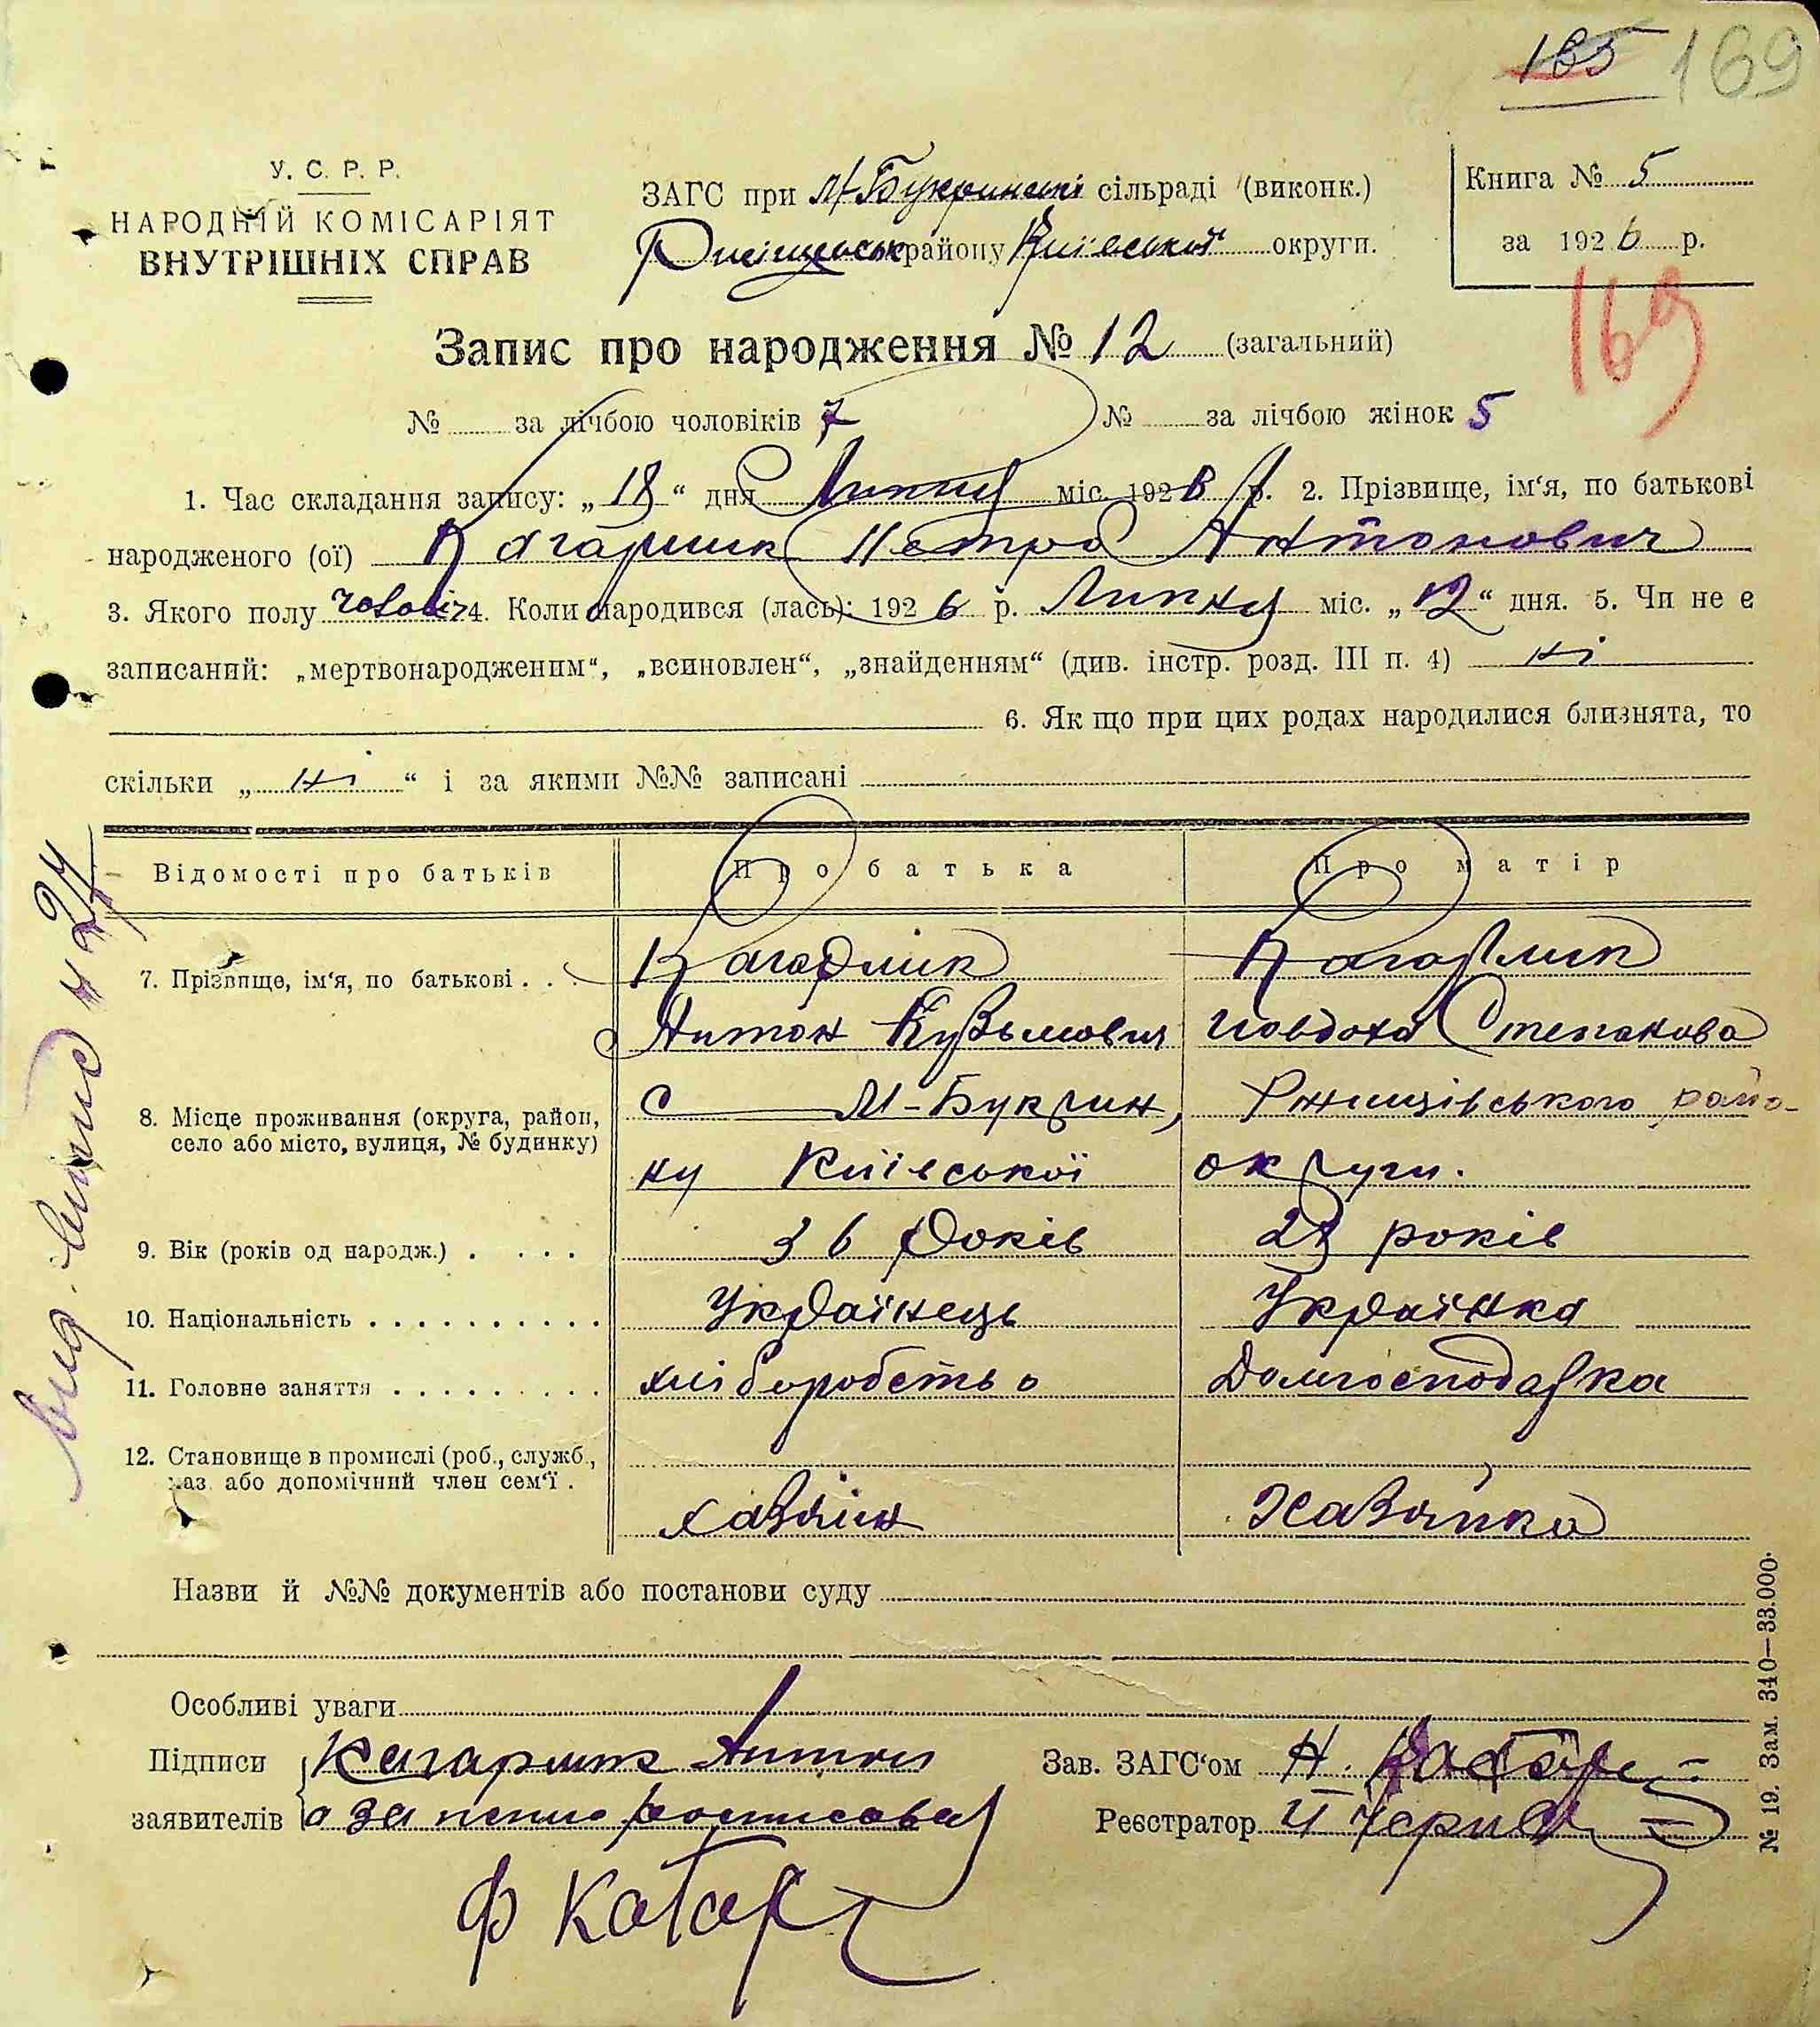 165 169
У. С. Р. Р.
НАРОДНІЙ КОМІСАРІЯТ
ВНУТРІШНІХ СПРАВ
ЗАГС при М-Букринські сільраді (виконк.)
Ржищевськ району Київської округи.
Книга № 5
за 1926 р.
169
Запис про народження № 12 (загальний)
№ за лічбою чоловіків 7 № за лічбою жінок 5
1. Час складання запису: „18“ дня Липня міс. 1926 р. 2. Прізвище, ім‘я, по батькові
народженого (ої) Кагарлик Петро Антонович
3. Якого полу чоловіч 4. Коли народився (лась): 1926 р. Липня міс. „12“ дня. 5. Чи не є
записаний: „мертвонародженим“, „всиновлен“, „знайденням“ (див. інстр. розд. III п. 4) ні
6. Як що при цих родах народилися близнята, то
скільки „ні“ і за якими №№ записані
Відомості про батьків Про батька Про матір
7. Прізвище, ім‘я, по батькові . . . Кагарлик Кагарлик
Антон Кузьмович Явдоха Степанова
8. Місце проживання (округа, район, с М-Букрин, Ржищівського райо-
село або місто, вулиця, № будинку)
ну Київської округи.
9. Вік (років од народж.) . . . . 36 років 28 років
10. Національність . . . . . . . . . . Українець Українка
11. Головне заняття . . . . . . . . . хліборобство Домгосподарка
12. Становище в промислі (роб., служб.,
хаз. або допомічний член сем‘ї .
хазяїн Хазяйка
Назви й №№ документів або постанови суду
Особливі уваги
Підписи Кагарлик Антон Зав. ЗАГС‘ом Н.
заявителів а за Реєстратор
Ф
№ 19. Зам. 340—33.000.